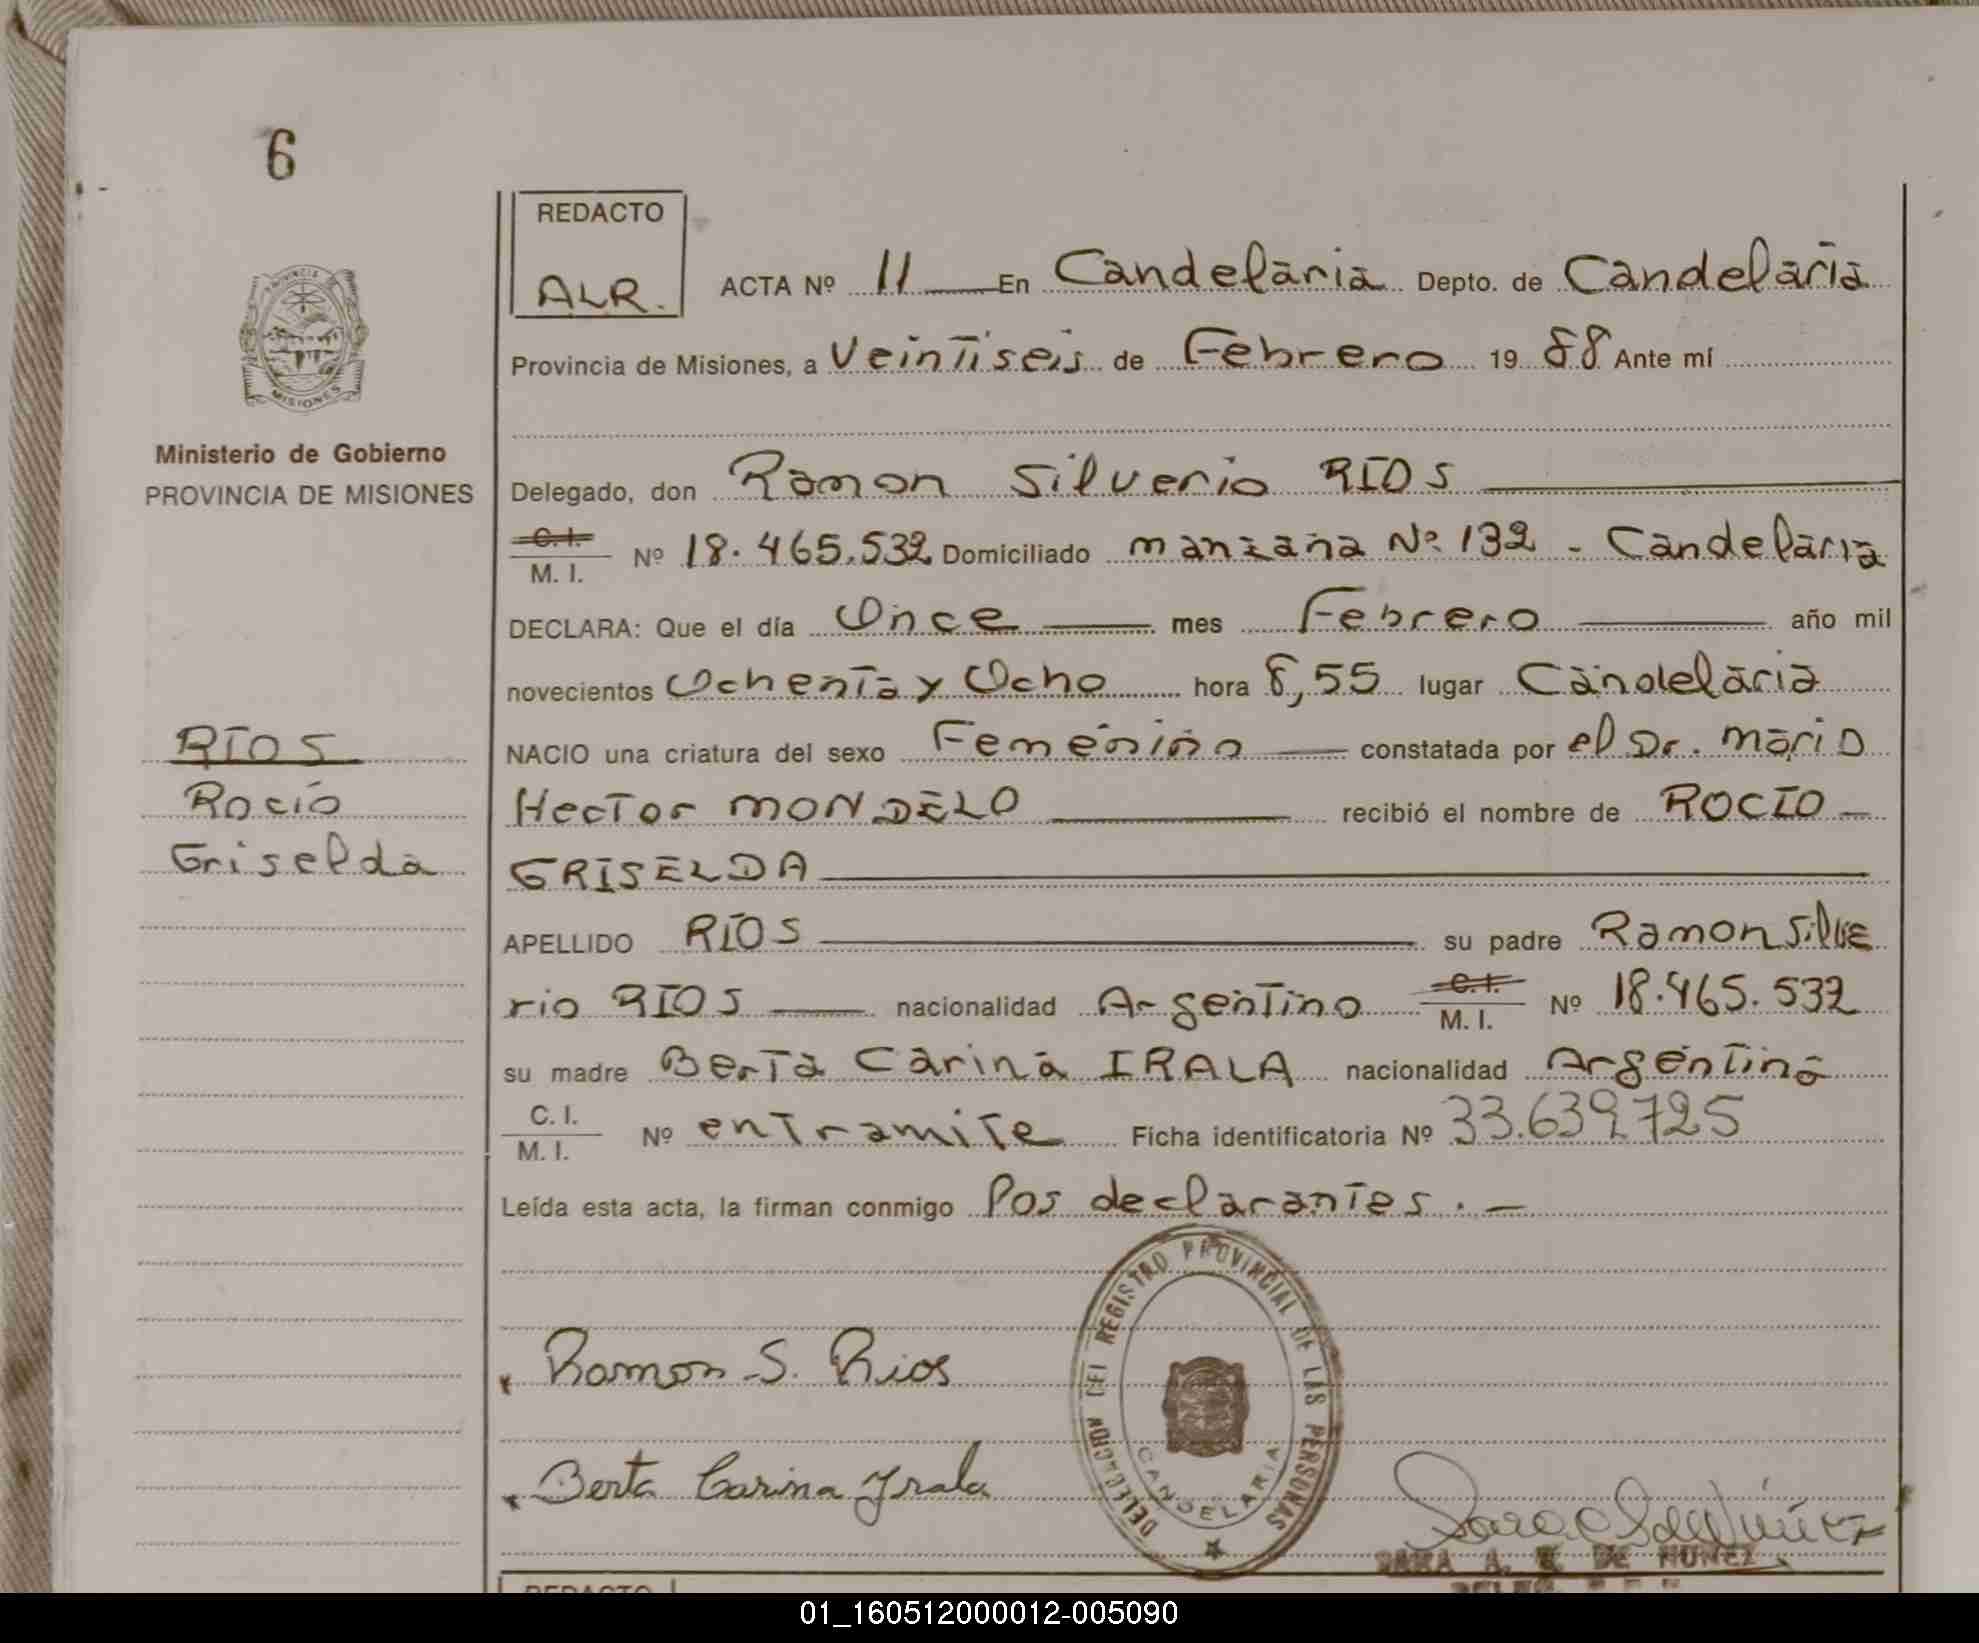 6
REDACTO
ALR.
ACTA Nº 11 En Candelaria Depto. de Candelaria
Provincia de Misiones, a Veintiseis de Febrero 19 88 Ante mí
PROVINCIA
MISIONES
Ministerio de Gobierno
PROVINCIA DE MISIONES
Delegado, don Ramon Silverio RIOS
C. I.
M. I. Nº 18.465.532 Domiciliado manzana Nº 132 - Candelaria
DECLARA: Que el día Once mes Febrero año mil
novecientos Ochenta y Ocho hora 8,55 lugar Candelaria
RIOS
Rocío
Griselda
NACIO una criatura del sexo Femenino constatada por el Dr. Mario
Hector MONDELO recibió el nombre de ROCIO
GRISELDA
APELLIDO RIOS su padre Ramon Silve
rio RIOS nacionalidad Argentino C. I.
M. I. Nº 18.465.532
su madre Berta Carina IRALA nacionalidad Argentina
C. I.
M. I. Nº en tramite Ficha identificatoria Nº 33.639725
Leída esta acta, la firman conmigo los declarantes.-
Ramon S. Rios
Berta Carina Irala
DELEGACION DEL REGISTRO PROVINCIAL DE LAS PERSONAS
CANDELARIA
SARA A. DE NUÑEZ
REDACTO
01_160512000012-005090